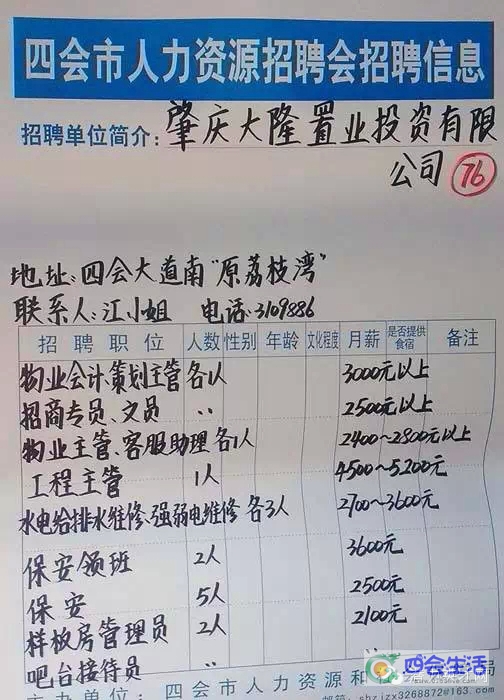 四会市人力资源招聘会招聘信息
招聘单位简介：肇庆大隆置业投资有限
公司 76
地址：四会大道南"原荔枝湾"
联系人：江小姐 电话：3109886
招聘职位 人数 性别 年龄 文化程度 月薪 是否提供食宿 备注
物业会计、策划主管 各1人 3000元以上
招商专员、文员 〃 2500元以上
物业主管、客服助理 各1人 2400~2800元以上
工程主管 1人 4500~5200元
水电给排水维修、强弱电维修 各3人 2700~3600元
保安领班 2人 3600元
保安 5人 2500元
样板房管理员 2人 2100元
吧台接待员 〃 〃
四会生活
主办单位：四会市人力资源和